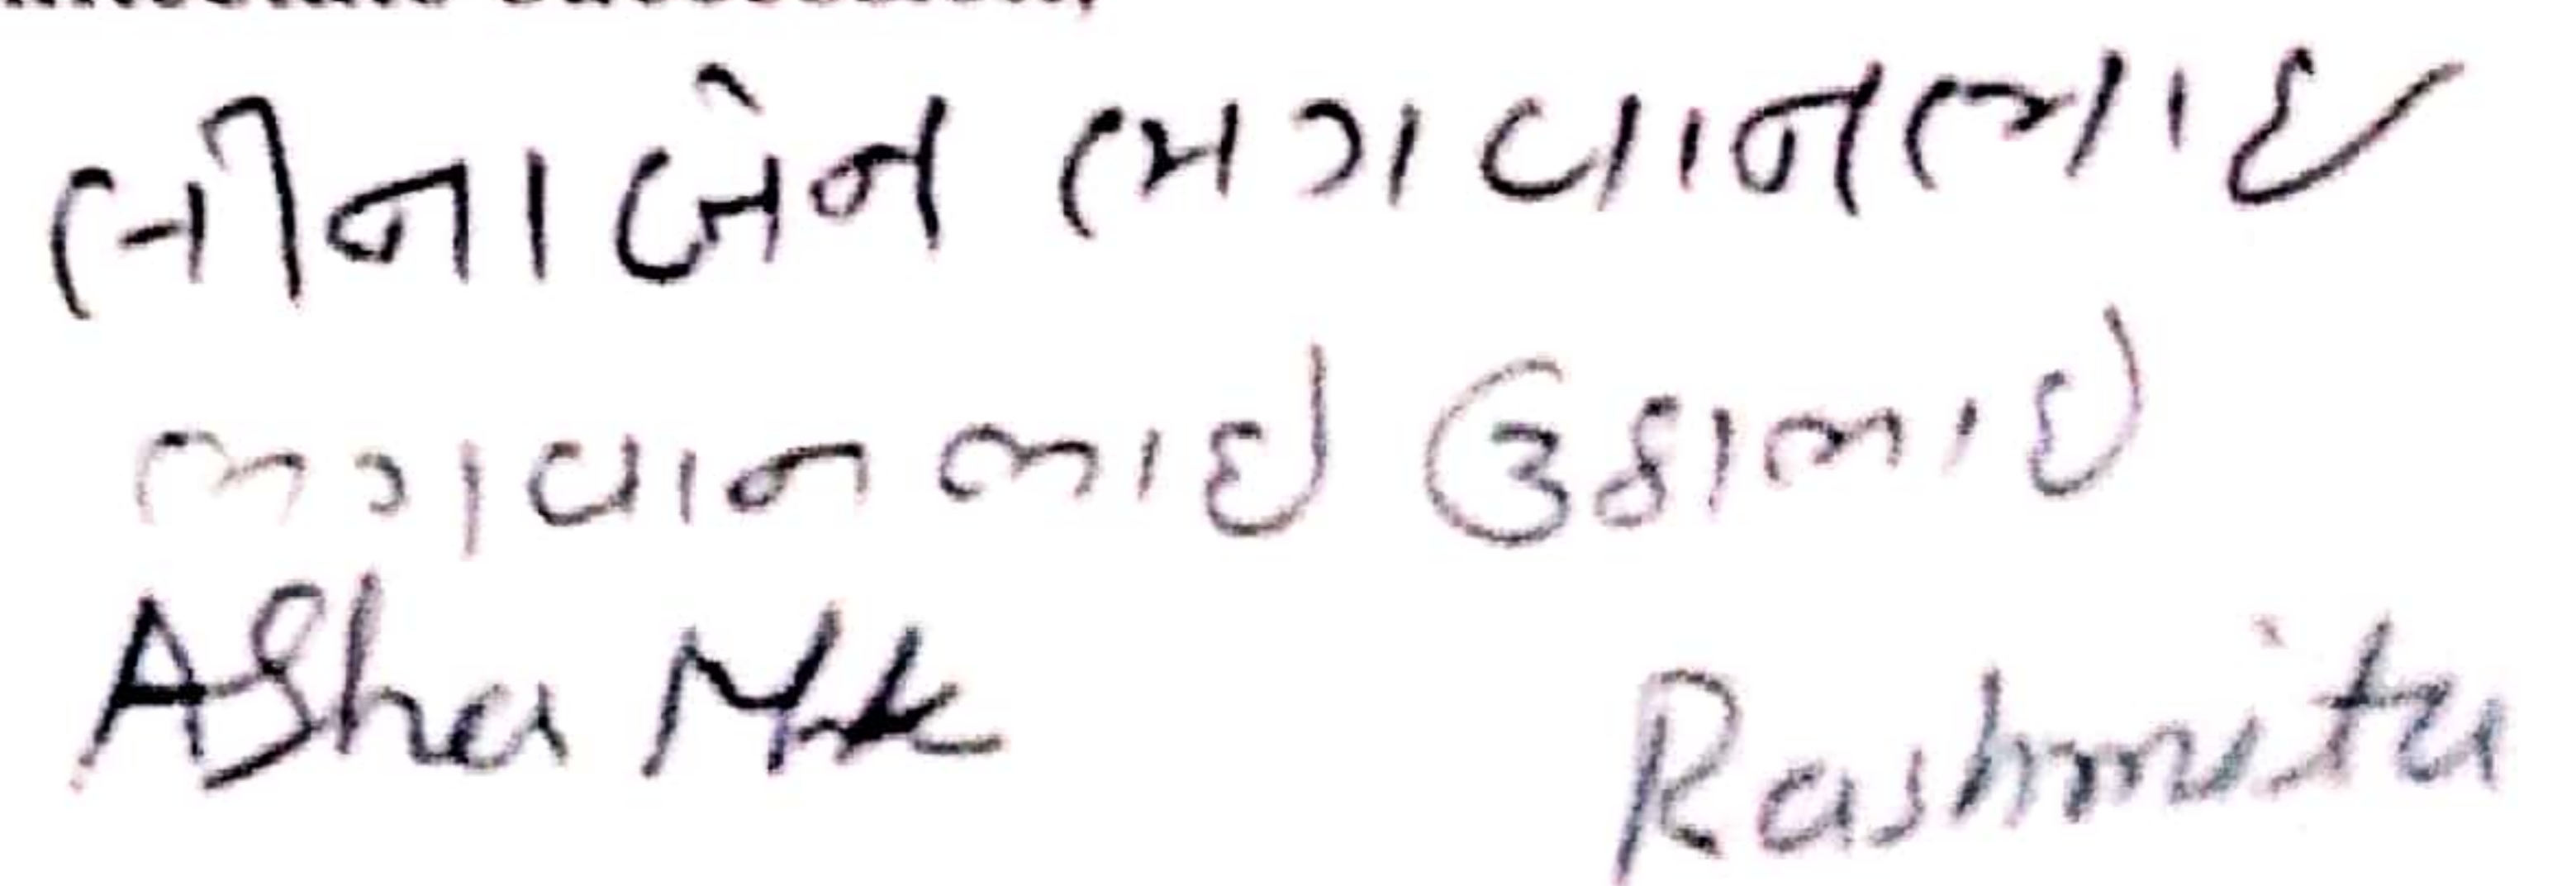 લીનાબેન ભગવાનભાઈ
ભગવાનભાઈ ઉકાભાઈ
Asha Rashmita